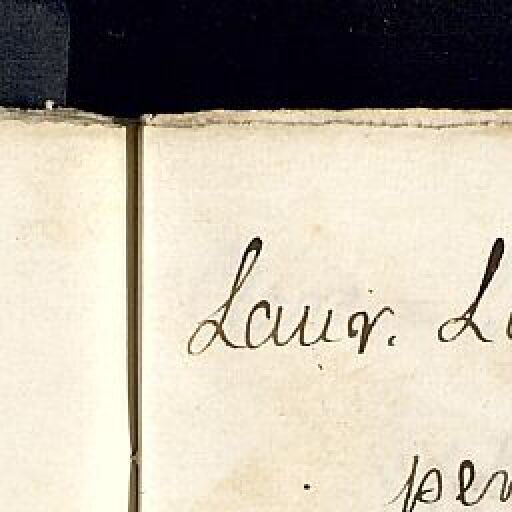 Laur. L
per